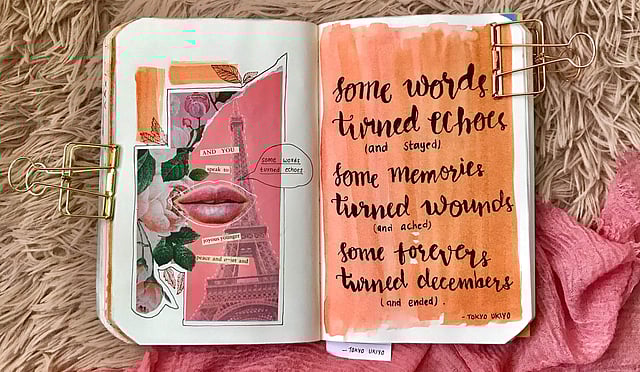 AND YOU
speak to
some words
turned echoes
joyous younger
peace and
and
some words
turned echoes
(and stayed)
some memories
turned wounds
(and ached)
some forevers
turned decembers
(and ended).
- TOKYO UKIYO
- TOKYO UKIYO